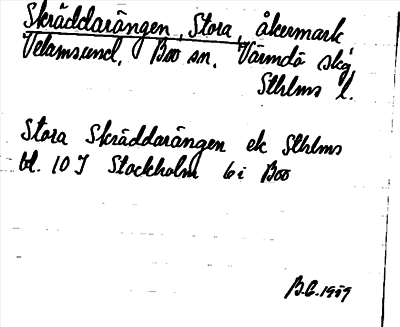 Skräddarängen, Stora, åkermark
Velamsund, Boo sn. Värmdö skg
Sthlms l.
Stora Skräddarängen ek Sthlms
bl. 10 I Stockholm 6i Boo
B.G. 1959